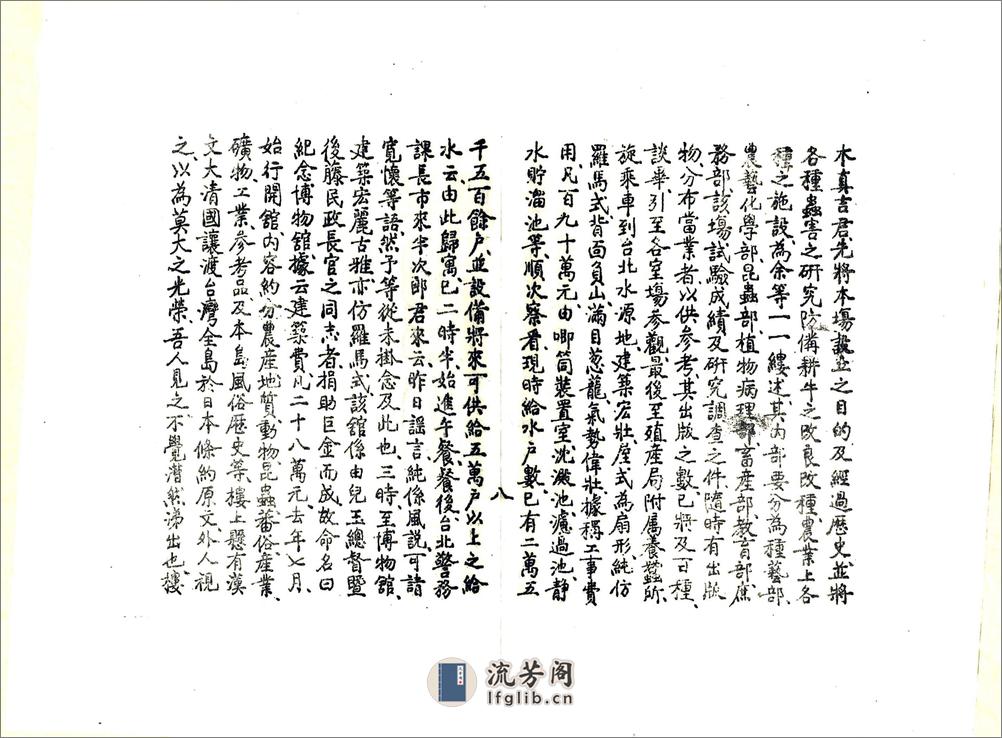 木真吉君先將本塲設立之目的及經過歷史並將
各種蟲害之研究防備耕牛之改良改種農業上各
種之施設為余等一一縷述其內部要分為種藝部、
農藝化學部、昆蟲部、植物病理部、畜產部、教育部、庶
務部、該塲試驗成績及研究調查之件隨時有出版
物、分布當業者以供參考、其出版之數、已將及百種、
談畢、引至各室塲參觀、最後至殖產局附屬養蠶所、
旋乘車到台北水源地、建築宏壯、屋式為扇形、純仿
羅馬式、背面負山、滿目葱蘢、氣勢偉壯、據稱工事費
用、凡百九十萬元、由唧筒裝置室、沈澱池、濾過池、靜
水貯溜池等、順次察看、現時給水戶數、已有二萬五
八
千五百餘戶、並設備將來可供給五萬戶以上之給
水云、由此歸寓、已二時半、始進午餐、餐後、台北警務
課長市來半次郎君來云、昨日謠言、純係風說、可請
寬懷等語、然予等從未掛念及此也、三時至博物館、
建築宏麗古雅、亦仿羅馬式、該館係由兒玉總督暨
後藤民政長官之同志者、捐助巨金而成、故命名曰
紀念博物館、據云建築費凡二十八萬元、去年七月、
始行開館、內容約分農產地質動物昆蟲蕃俗產業、
礦物工業、參考品及本島風俗歷史等、樓上懸有漢
文大清國讓渡台灣全島於日本條約原文、外人視
之、以為莫大之光榮、吾人見之不覺潸然涕出也、樓
流芳阁
lfglib.cn